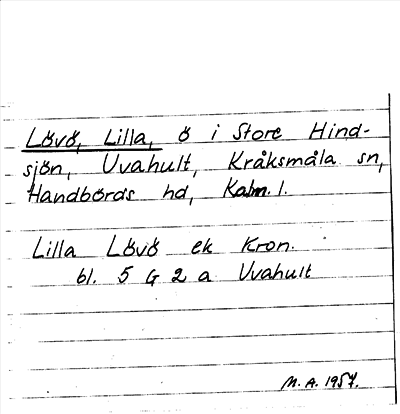 Lövö, Lilla, ö i Store Hind-
sjön, Uvahult, Kråksmåla sn,
Handbörds hd, Kalm. l.
Lilla Lövö ek Kron.
bl. 5 G 2 a Uvahult
M. A. 1957.